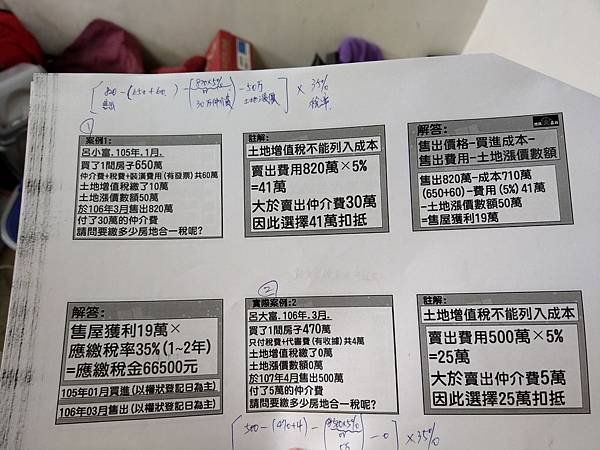 [820-(650+60)-(820×5%)-50万]×35%
售出 or 30万仲介費 土地漲價 稅率
①
案例1:
呂小富.105年.1月.
買了1間房子650萬
仲介費+稅費+裝潢費用(有發票)共60萬
土地增值稅繳了10萬
土地漲價數額50萬
於106年3月售出820萬
付了30萬的仲介費
請問要繳多少房地合一稅呢?
註解:
土地增值稅不能列入成本
賣出費用820萬×5%
=41萬
大於賣出仲介費30萬
因此選擇41萬扣抵
解答:
售出價格-買進成本-
售出費用-土地漲價數額
售出820萬-成本710萬
(650+60)-費用(5%)41萬
-土地漲價數額50萬
=售屋獲利19萬
解答:
售屋獲利19萬×
應繳稅率35%(1~2年)
=應繳稅金66500元
105年01月買進(以權狀登記日為主)
106年03月售出(以權狀登記日為主)
②
實際案例:2
呂大富.106年.3月.
買了1間房子470萬
只付稅費+代審費(有收據)共4萬
土地增值稅繳了0萬
土地漲價數額0萬
於107年4月售出500萬
付了5萬的仲介費
請問要繳多少房地合一稅呢?
註解:
土地增值稅不能列入成本
賣出費用500萬×5%
=25萬
大於賣出仲介費5萬
因此選擇25萬扣抵
[500-(470+4)-(500×5%)-0]×35%
or
5万